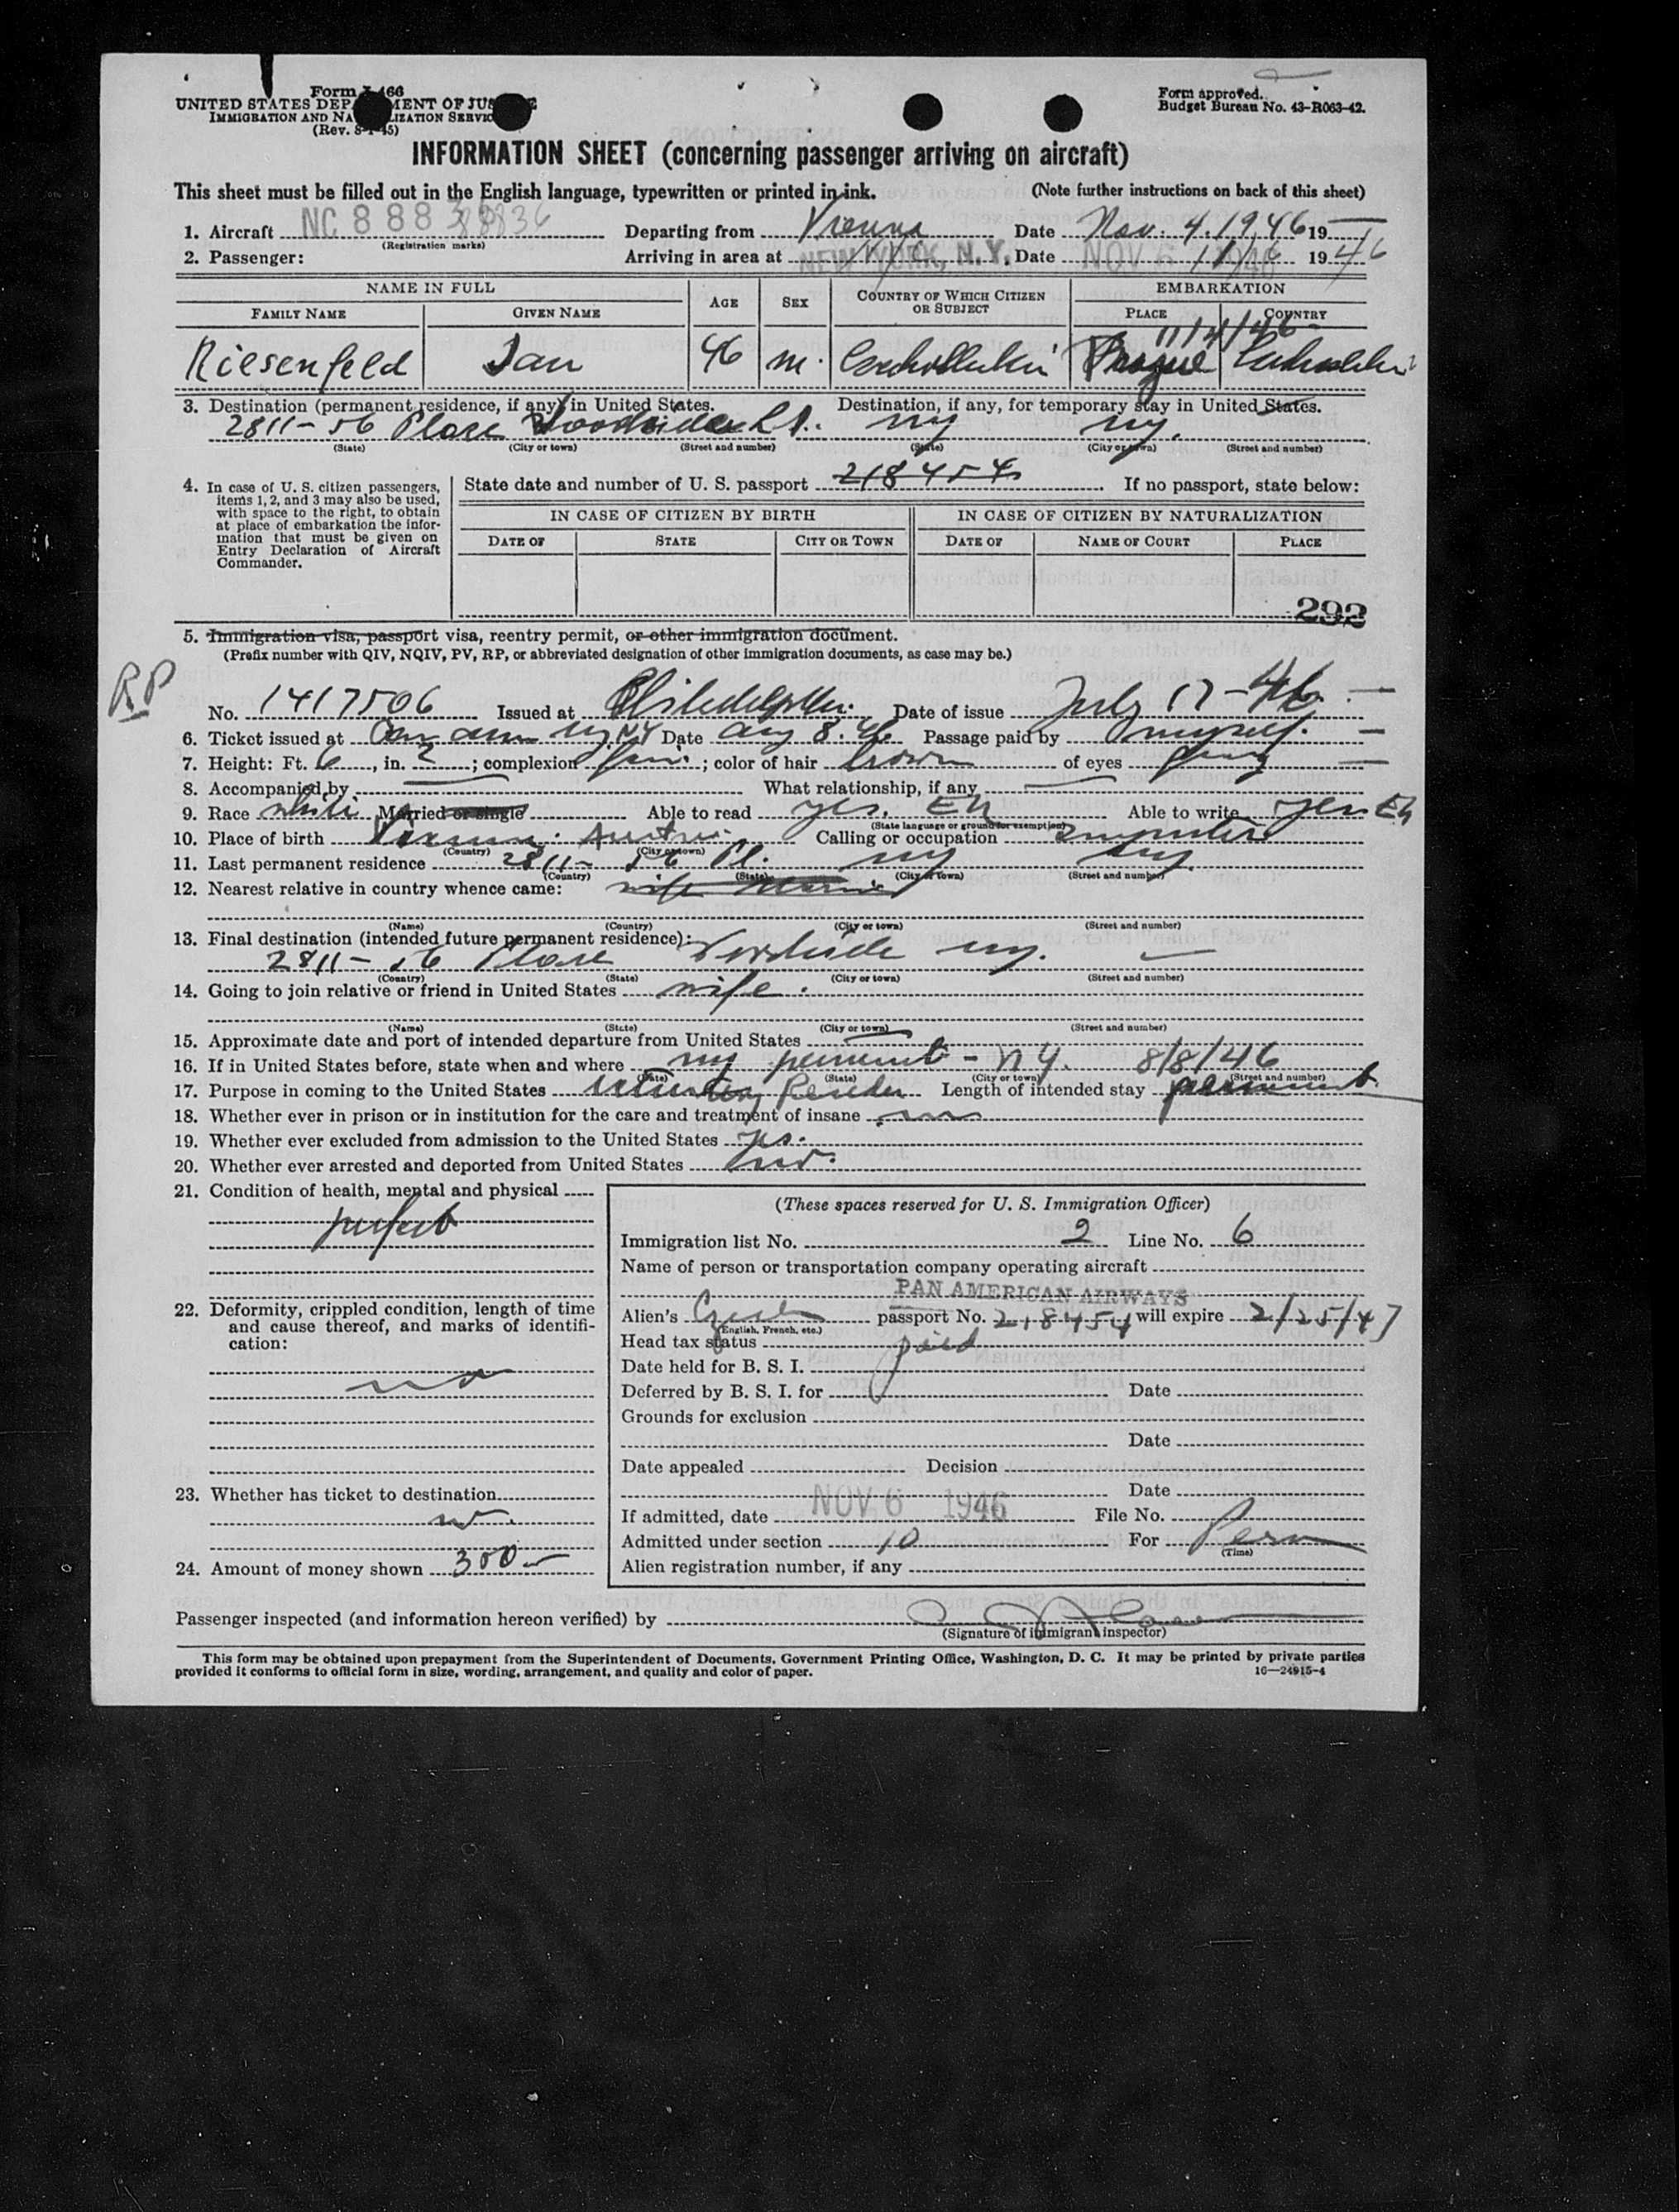 Form I-466
UNITED STATES DEPARTMENT OF JUSTICE
IMMIGRATION AND NATURALIZATION SERVICE
(Rev. 8-1-45)
Form approved.
Budget Bureau No. 43-R063-42.
INFORMATION SHEET (concerning passenger arriving on aircraft)
This sheet must be filled out in the English language, typewritten or printed in ink. (Note further instructions on back of this sheet)
1. Aircraft NC 88836 (Registration marks) Departing from Vienna Date Nov. 4. 1946 19
2. Passenger: Arriving in area at NEW YORK, N. Y. Date NOV 6 1946 11/6 1946
NAME IN FULL AGE SEX COUNTRY OF WHICH CITIZEN OR SUBJECT EMBARKATION
FAMILY NAME GIVEN NAME PLACE COUNTRY
11/4/46
Riesenfeld Jan 46 m. Prague
3. Destination (permanent residence, if any) in United States. Destination, if any, for temporary stay in United States.
2811 - 56 Place Woodside L.I. ny ny.
(State) (City or town) (Street and number) (State) (City or town) (Street and number)
4. In case of U. S. citizen passengers, items 1, 2, and 3 may also be used, with space to the right, to obtain at place of embarkation the information that must be given on Entry Declaration of Aircraft Commander.
State date and number of U. S. passport 218454 If no passport, state below:
IN CASE OF CITIZEN BY BIRTH IN CASE OF CITIZEN BY NATURALIZATION
DATE OF STATE CITY OR TOWN DATE OF NAME OF COURT PLACE
292
5. Immigration visa, passport visa, reentry permit, or other immigration document.
(Prefix number with QIV, NQIV, PV, RP, or abbreviated designation of other immigration documents, as case may be.)
RP
No. 1417506 Issued at Philadelphia Date of issue July 17-46
6. Ticket issued at Pan am ny NY Date Aug 8. 46 Passage paid by myself.
7. Height: Ft. 6, in. 2; complexion fair; color of hair brown of eyes grey
8. Accompanied by What relationship, if any
9. Race white Married or single Able to read yes, Eh Able to write yes Eh
(State language or ground for exemption)
10. Place of birth Vienna. Austria Calling or occupation
(Country) (City or town)
11. Last permanent residence 2811 - 56 Pl. ny ny.
(Country) (State) (City or town) (Street and number)
12. Nearest relative in country whence came: wife
(Name) (Country) (City or town) (Street and number)
13. Final destination (intended future permanent residence):
2811 - 56 Place Woodside ny.
(Country) (State) (City or town) (Street and number)
14. Going to join relative or friend in United States wife.
(Name) (State) (City or town) (Street and number)
15. Approximate date and port of intended departure from United States
16. If in United States before, state when and where ny permanent - NY. 8/8/46
(Date) (State) (City or town) (Street and number)
17. Purpose in coming to the United States Length of intended stay permanent
18. Whether ever in prison or in institution for the care and treatment of insane no
19. Whether ever excluded from admission to the United States
20. Whether ever arrested and deported from United States no.
21. Condition of health, mental and physical
perfect
22. Deformity, crippled condition, length of time and cause thereof, and marks of identification:
no
23. Whether has ticket to destination
no.
24. Amount of money shown 300
(These spaces reserved for U. S. Immigration Officer)
Immigration list No. 2 Line No. 6
Name of person or transportation company operating aircraft
PAN AMERICAN AIRWAYS
Alien's Czech passport No. 218454 will expire 2/25/47
(English, French, etc.)
Head tax status paid
Date held for B. S. I.
Deferred by B. S. I. for Date
Grounds for exclusion
Date
Date appealed Decision
Date
If admitted, date NOV 6 1946 File No.
Admitted under section 10 For Perm
(Time)
Alien registration number, if any
Passenger inspected (and information hereon verified) by
(Signature of immigrant inspector)
This form may be obtained upon prepayment from the Superintendent of Documents, Government Printing Office, Washington, D. C. It may be printed by private parties
provided it conforms to official form in size, wording, arrangement, and quality and color of paper. 16—24915-4